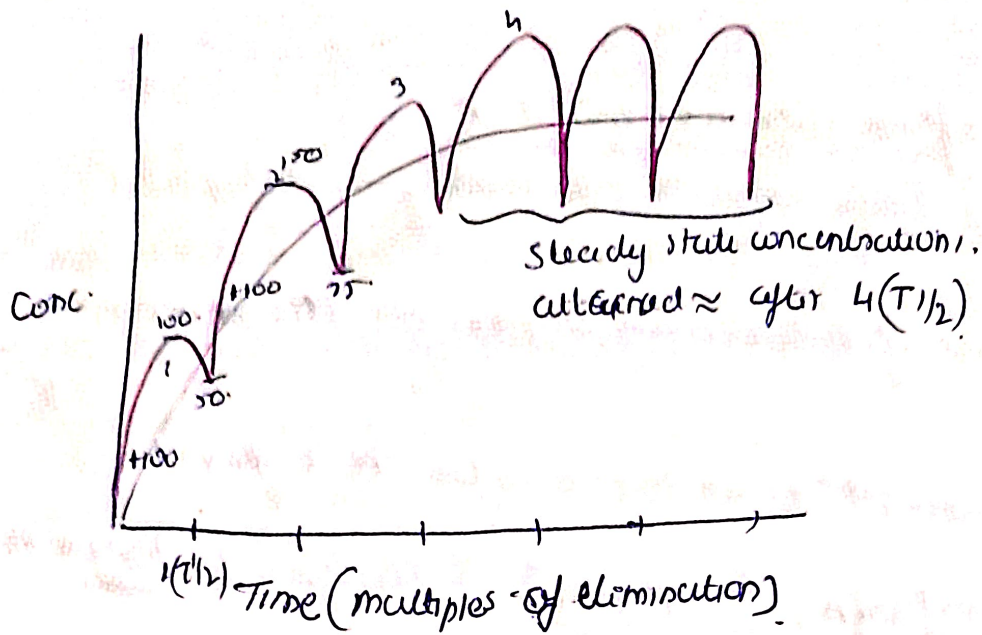 4
3
150
2
+100
75
Conc.
100
1
50
+100
steady state concentrations.
attained ≈ after 4(T1/2)
1(T1/2)
Time (multiples of elimination)